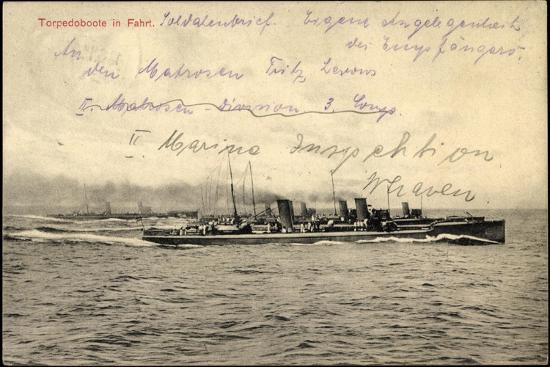 Torpedoboote in Fahrt.
Soldatenbrief. Eigene Angelegenheit
des Empfängers.
An
den Matrosen Fritz
II. Matrosen-Division 3. Comp.
II Marine Inspektion
W'haven.